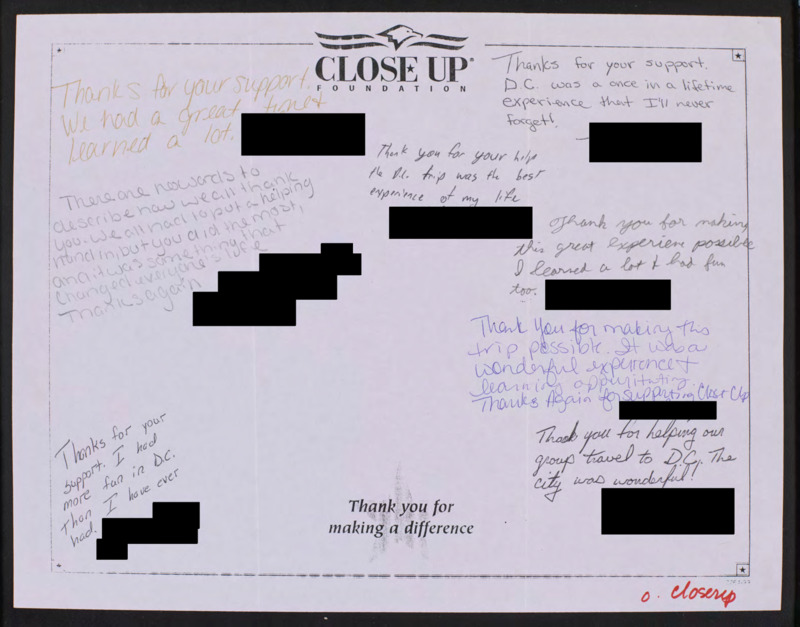 CLOSE UP®
FOUNDATION
Thanks for your support.
We had a great time &
learned a lot.
Thanks for your support.
D.C. was a once in a lifetime
experience that I'll never
forget!
Thank you for your help
the D.C. trip was the best
experience of my life
There are no words to
describe how we all thank
you. We all had to put a helping
hand in, but you did the most,
and it was something that
changed everyone's life
Thanks again
Thank you for making
this great experien possible
I learned a lot & had fun
too.
Thank You for making this
trip possible. It was a
wonderful experience &
learning
Thanks Again for supporting Close Up
Thank you for helping our
group travel to D.C. The
city was wonderful!
Thanks for your
support. I had
more fun in D.C.
Than I have ever
had.
Thank you for
making a difference
o. closeup